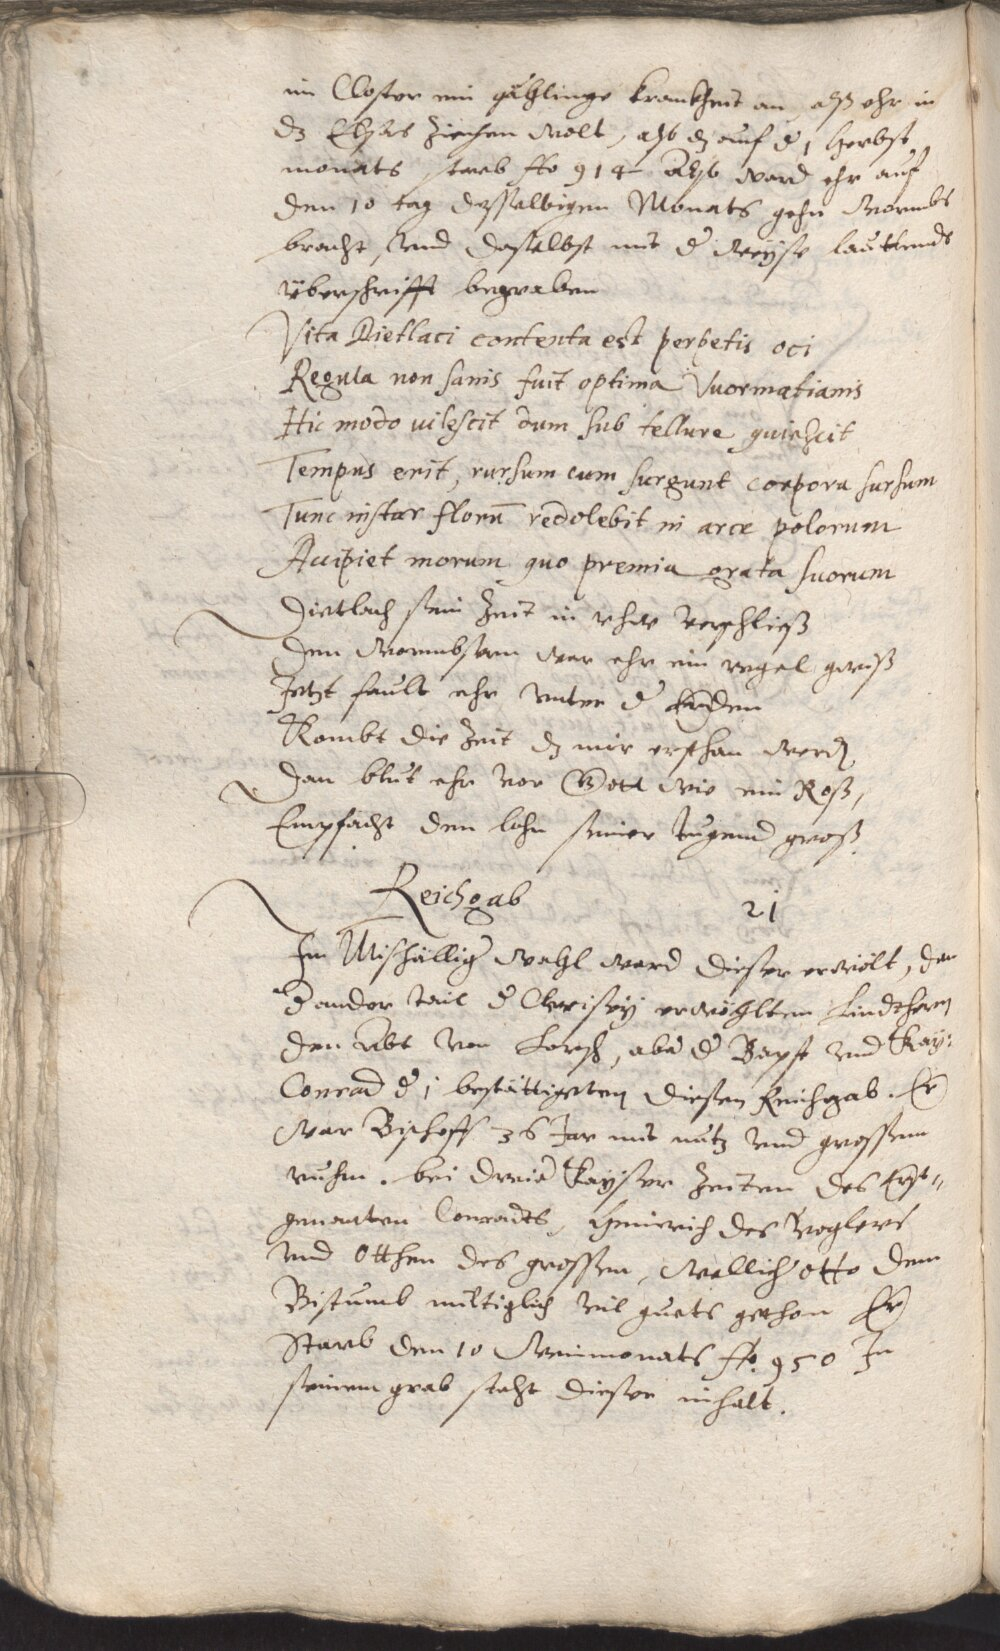 im Closter ein gählinge kranckheit an, alß ehr in
dz Elsas ziechen wolt, alß dz auf d 1 Herbst
monats starb Ao 914 Also ward ehr auf
den 10 tag desselbigen Monats gehn Wormbs
bracht, vnd daselbst mit d weÿse lauttends
überschrifft begraben
Vita Dietlaci contenta est perpetis oci
Regula non sanis fuit optima Vuormatianis
Hic modo vilescit dum sub tellure quiescit
Tempus erit, rursum cum surgunt corpora sursum
Tunc instar florũ redolebit in arce polorum
Accipiet morum quo premia grata suorum
Dietlach sein Zeit in rhue verschließ
Den Wormbsern war ehr ein regel gwiß
Jetzt fault ehr vnter d Erden
Kombt die Zeit dz mir ersthan werd
Dan blut ehr vor Gott wie ein Roß,
Empfächt den lohn seiner tugend groß.
Reichgab 21
In Mishällig wahl ward dieser erwölt, dan
d ander tail d Clerisey erwöhlten Lindthern
den Abt von Lorsch, abe d Bapst vnd Kay:
Conrad d i bestättigeten diesen Reichgab. Er
war Bischoff 36 Jar mit nutz vnd grossem
ruhm. bei dreie Kayser Zeiten des Erst„
genanten Conradts, Heinrich des Voglers
vnd Otthen des grossen, wellich Otto dem
Bistumb miltiglich viel guets gethon Er
Starb den 10 Weinmonats Ao. 950 In
seinem grab steht dieser inhalt.